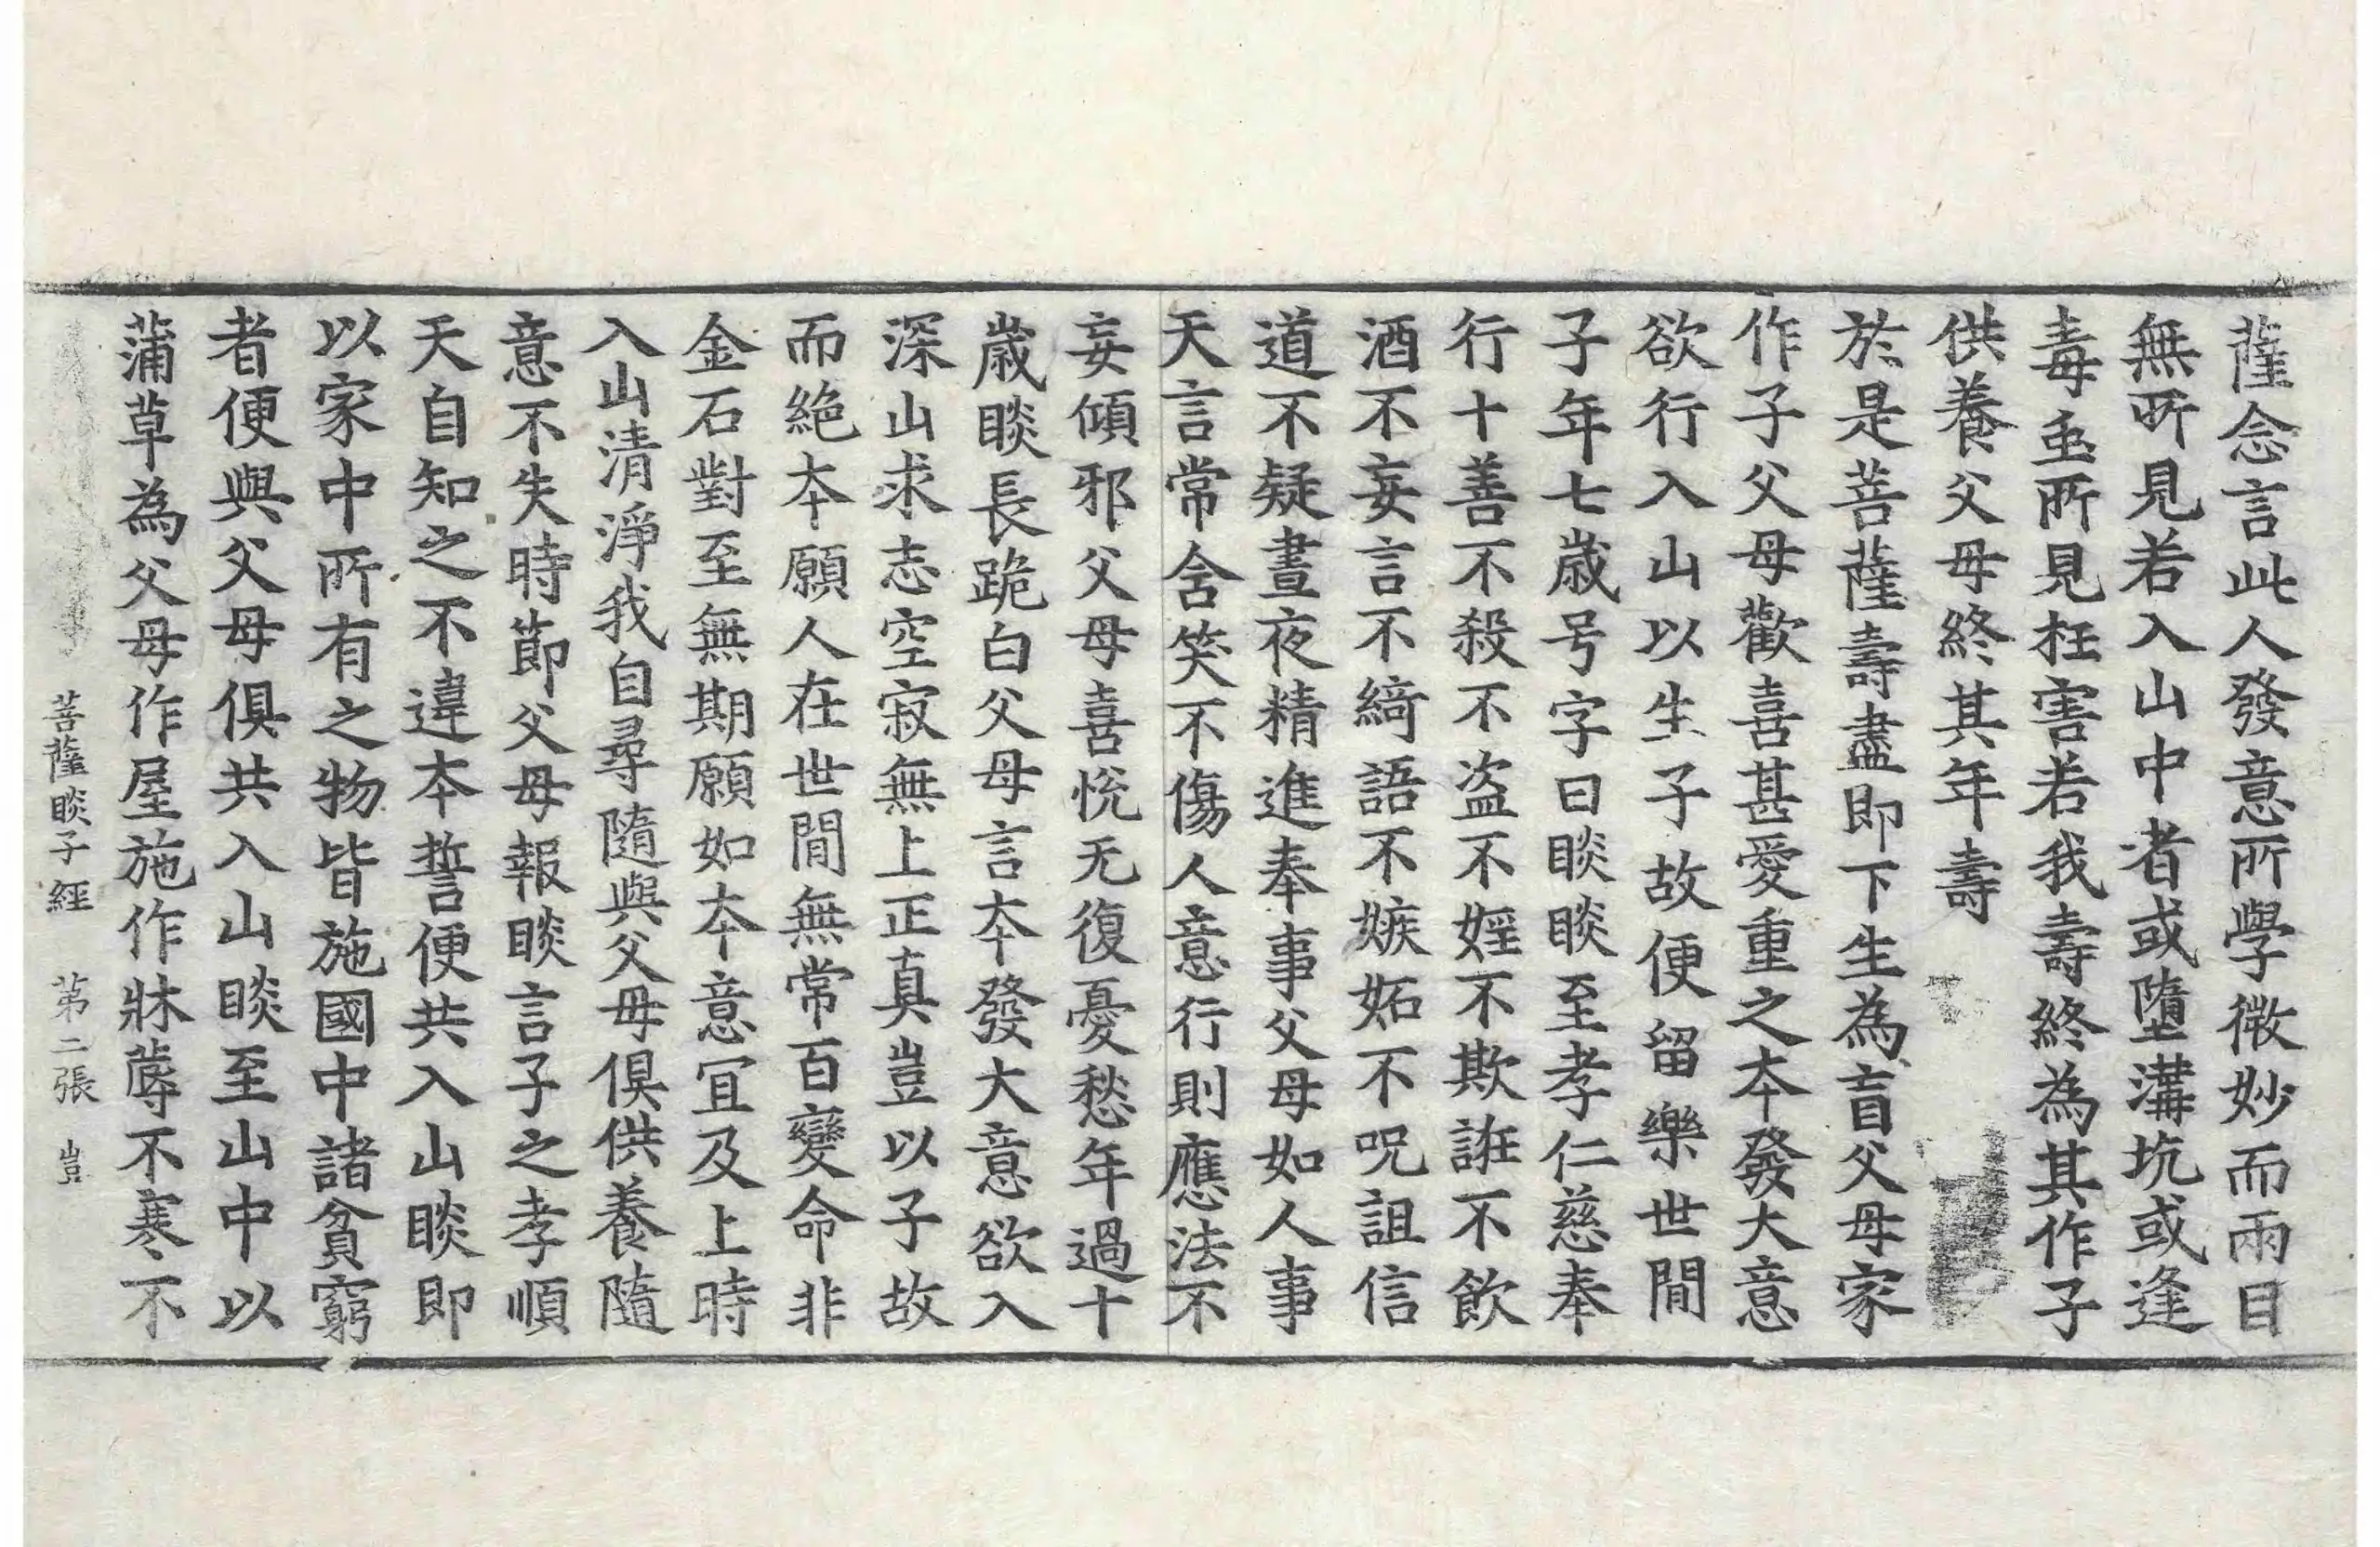 薩念言此人發意所學微妙而兩目
無所見若入山中者或墮溝坑或逢
毒䖝所見枉害若我壽終為其作子
供養父母終其年壽
於是菩薩壽盡即下生為盲父母家
作子父母歡喜甚愛重之夲發大意
欲行入山以生子故便留樂世間
子年七歲号字曰睒睒至孝仁慈奉
行十善不殺不盜不婬不欺誑不飲
酒不妄言不綺語不嫉妬不呪詛信
道不疑晝夜精進奉事父母如人事
天言常含笑不傷人意行則應法不
妄傾邪父母喜悅无復憂愁年過十
歲睒長跪白父母言夲發大意欲入
深山求志空寂無上正真豈以子故
而絕夲願人在世間無常百變命非
金石對至無期願如夲意冝及上時
入山清淨我自尋隨與父母俱供養隨
意不失時節父母報睒言子之孝順
天自知之不違夲誓便共入山睒即
以家中所有之物皆施國中諸貧窮
者便與父母俱共入山睒至山中以
蒲草為父母作屋施作牀蓐不寒不
菩薩睒子經 第二張 豈